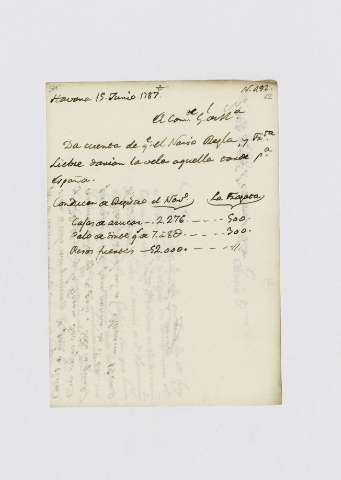 Havana 15 Junio 1787
N. 292
El Com.te G.l de M.a
Da cuenta de q.e el Navio Regla, y Frag.ta
Liebre darian la vela aquella tarde p.a
España.
Conducen de Registro el Nav.o La Fragata
Cajas de azucar — 2.276 — — — 500.
Palo de tinte q.s de 7.280 — — — 300.
Pesos fuertes — 52.000 — — — — "